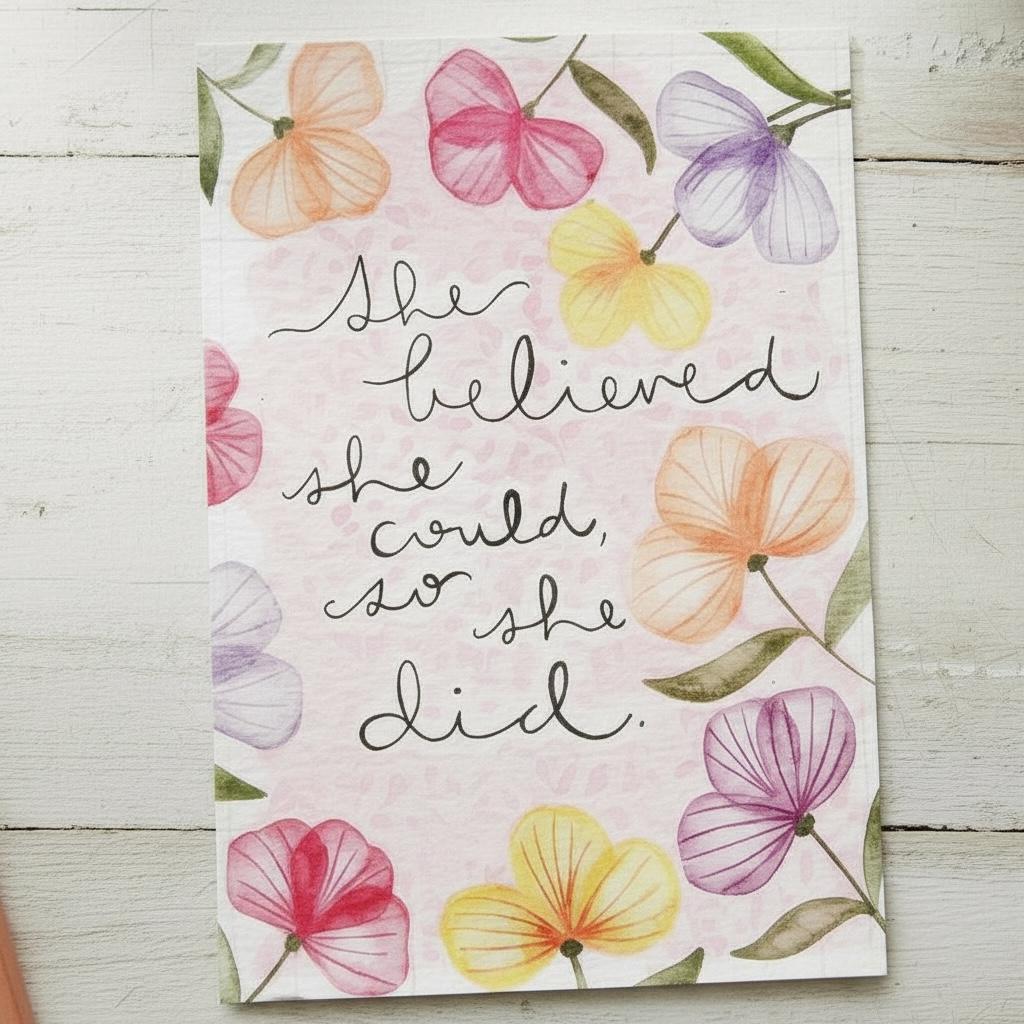 She
believed
she
could,
so she
did.